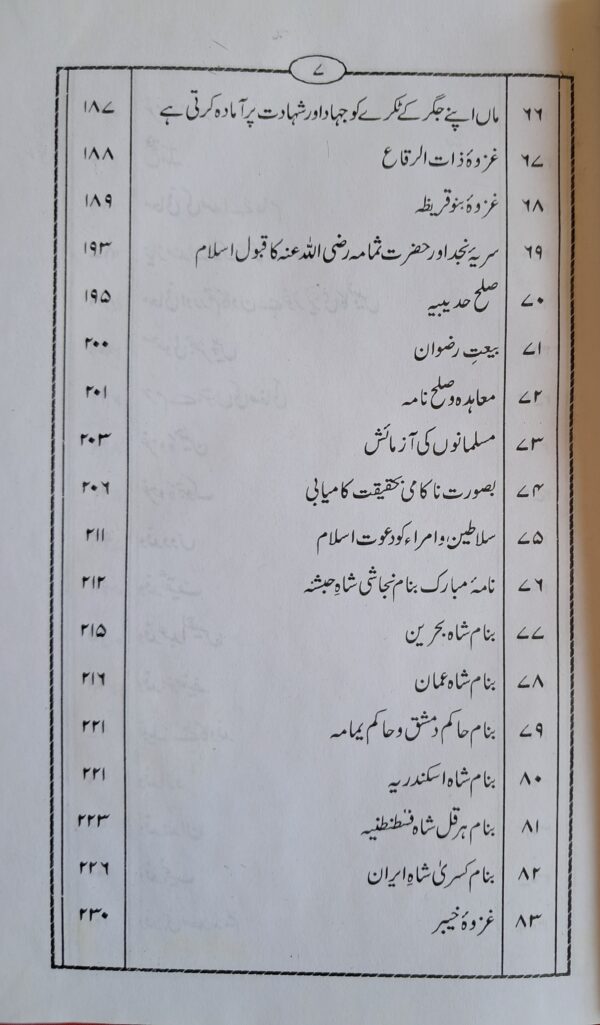 ۷
۶۶ ماں اپنے جگر کے ٹکرے کو جہاد اور شہادت پر آمادہ کرتی ہے ۱۸۷
۶۷ غزوۂ ذات الرقاع ۱۸۸
۶۸ غزوۂ بنو قریظہ ۱۸۹
۶۹ سریۂ نجد اور حضرت ثمامہ رضی اللہ عنہ کا قبول اسلام ۱۹۳
۷۰ صلح حدیبیہ ۱۹۵
۷۱ بیعتِ رضوان ۲۰۰
۷۲ معاہدہ و صلح نامہ ۲۰۱
۷۳ مسلمانوں کی آزمائش ۲۰۳
۷۴ بصورت ناکامی بحقیقت کامیابی ۲۰۶
۷۵ سلاطین و امراء کو دعوت اسلام ۲۱۱
۷۶ نامۂ مبارک بنام نجاشی شاہِ حبشہ ۲۱۲
۷۷ بنام شاہ بحرین ۲۱۵
۷۸ بنام شاہ عمان ۲۱۶
۷۹ بنام حاکم دمشق و حاکم یمامہ ۲۲۱
۸۰ بنام شاہ اسکندریہ ۲۲۱
۸۱ بنام ہرقل شاہ قسطنطنیہ ۲۲۳
۸۲ بنام کسریٰ شاہِ ایران ۲۲۶
۸۳ غزوۂ خیبر ۲۳۰